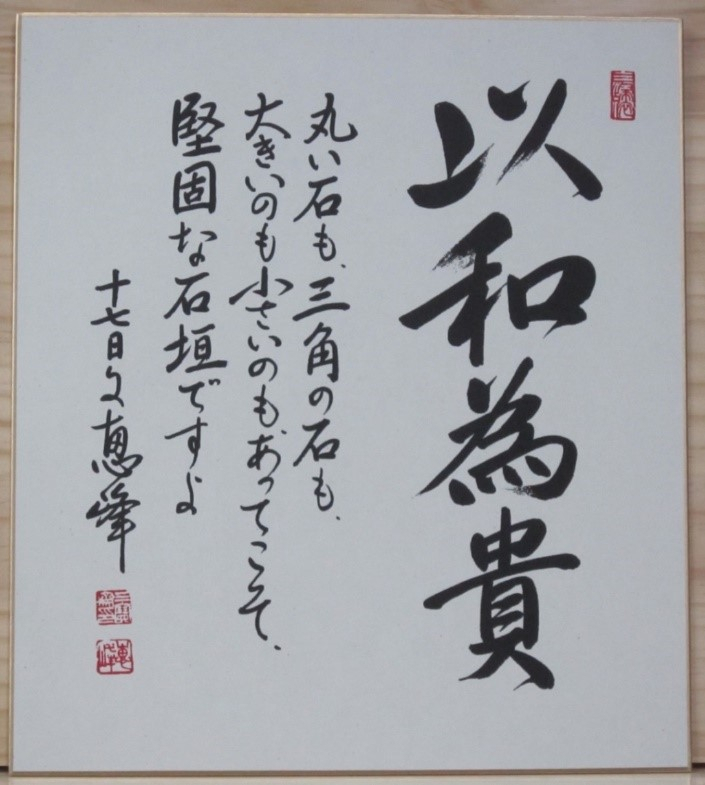 以和為貴
丸い石も、三角の石も、
大きいのも小さいのもあってこそ、
堅固な石垣ですよ
十七日文恵峰